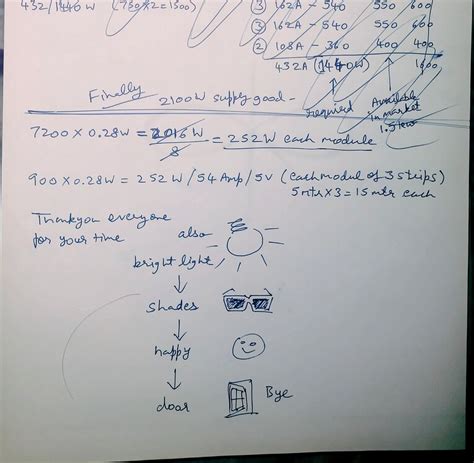 432/1440W (750x2=1500)
③ 162A - 540 550 600
③ 162A - 540 550 600
② 108A - 360 400 400
432A (1440W) 1600
Finally 2100W supply good -
required
Available in market
7200 x 0.28W = 2016W / 8 = 252W each module
900 x 0.28W = 252W / 54Amp / 5V (each modul of 3 strips)
5mtr x 3 = 15 mtr each
Thankyou everyone
for your time
also
bright light
shades
happy
door
Bye